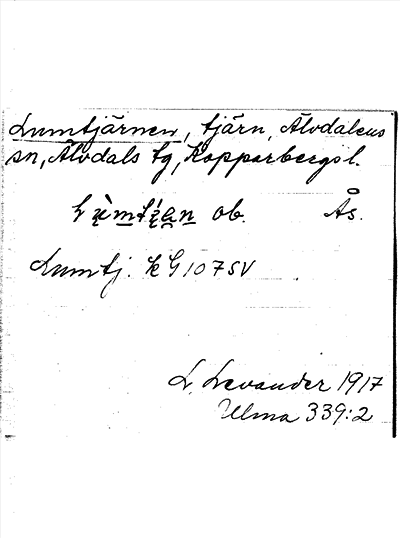 Lumtjärnen, tjärn, Älvdalens
sn, Älvdals tg, Kopparbergs l.
ob. Ås.
Lumtj. k G 107 SV
L. Levander 1917
Ulma 339:2